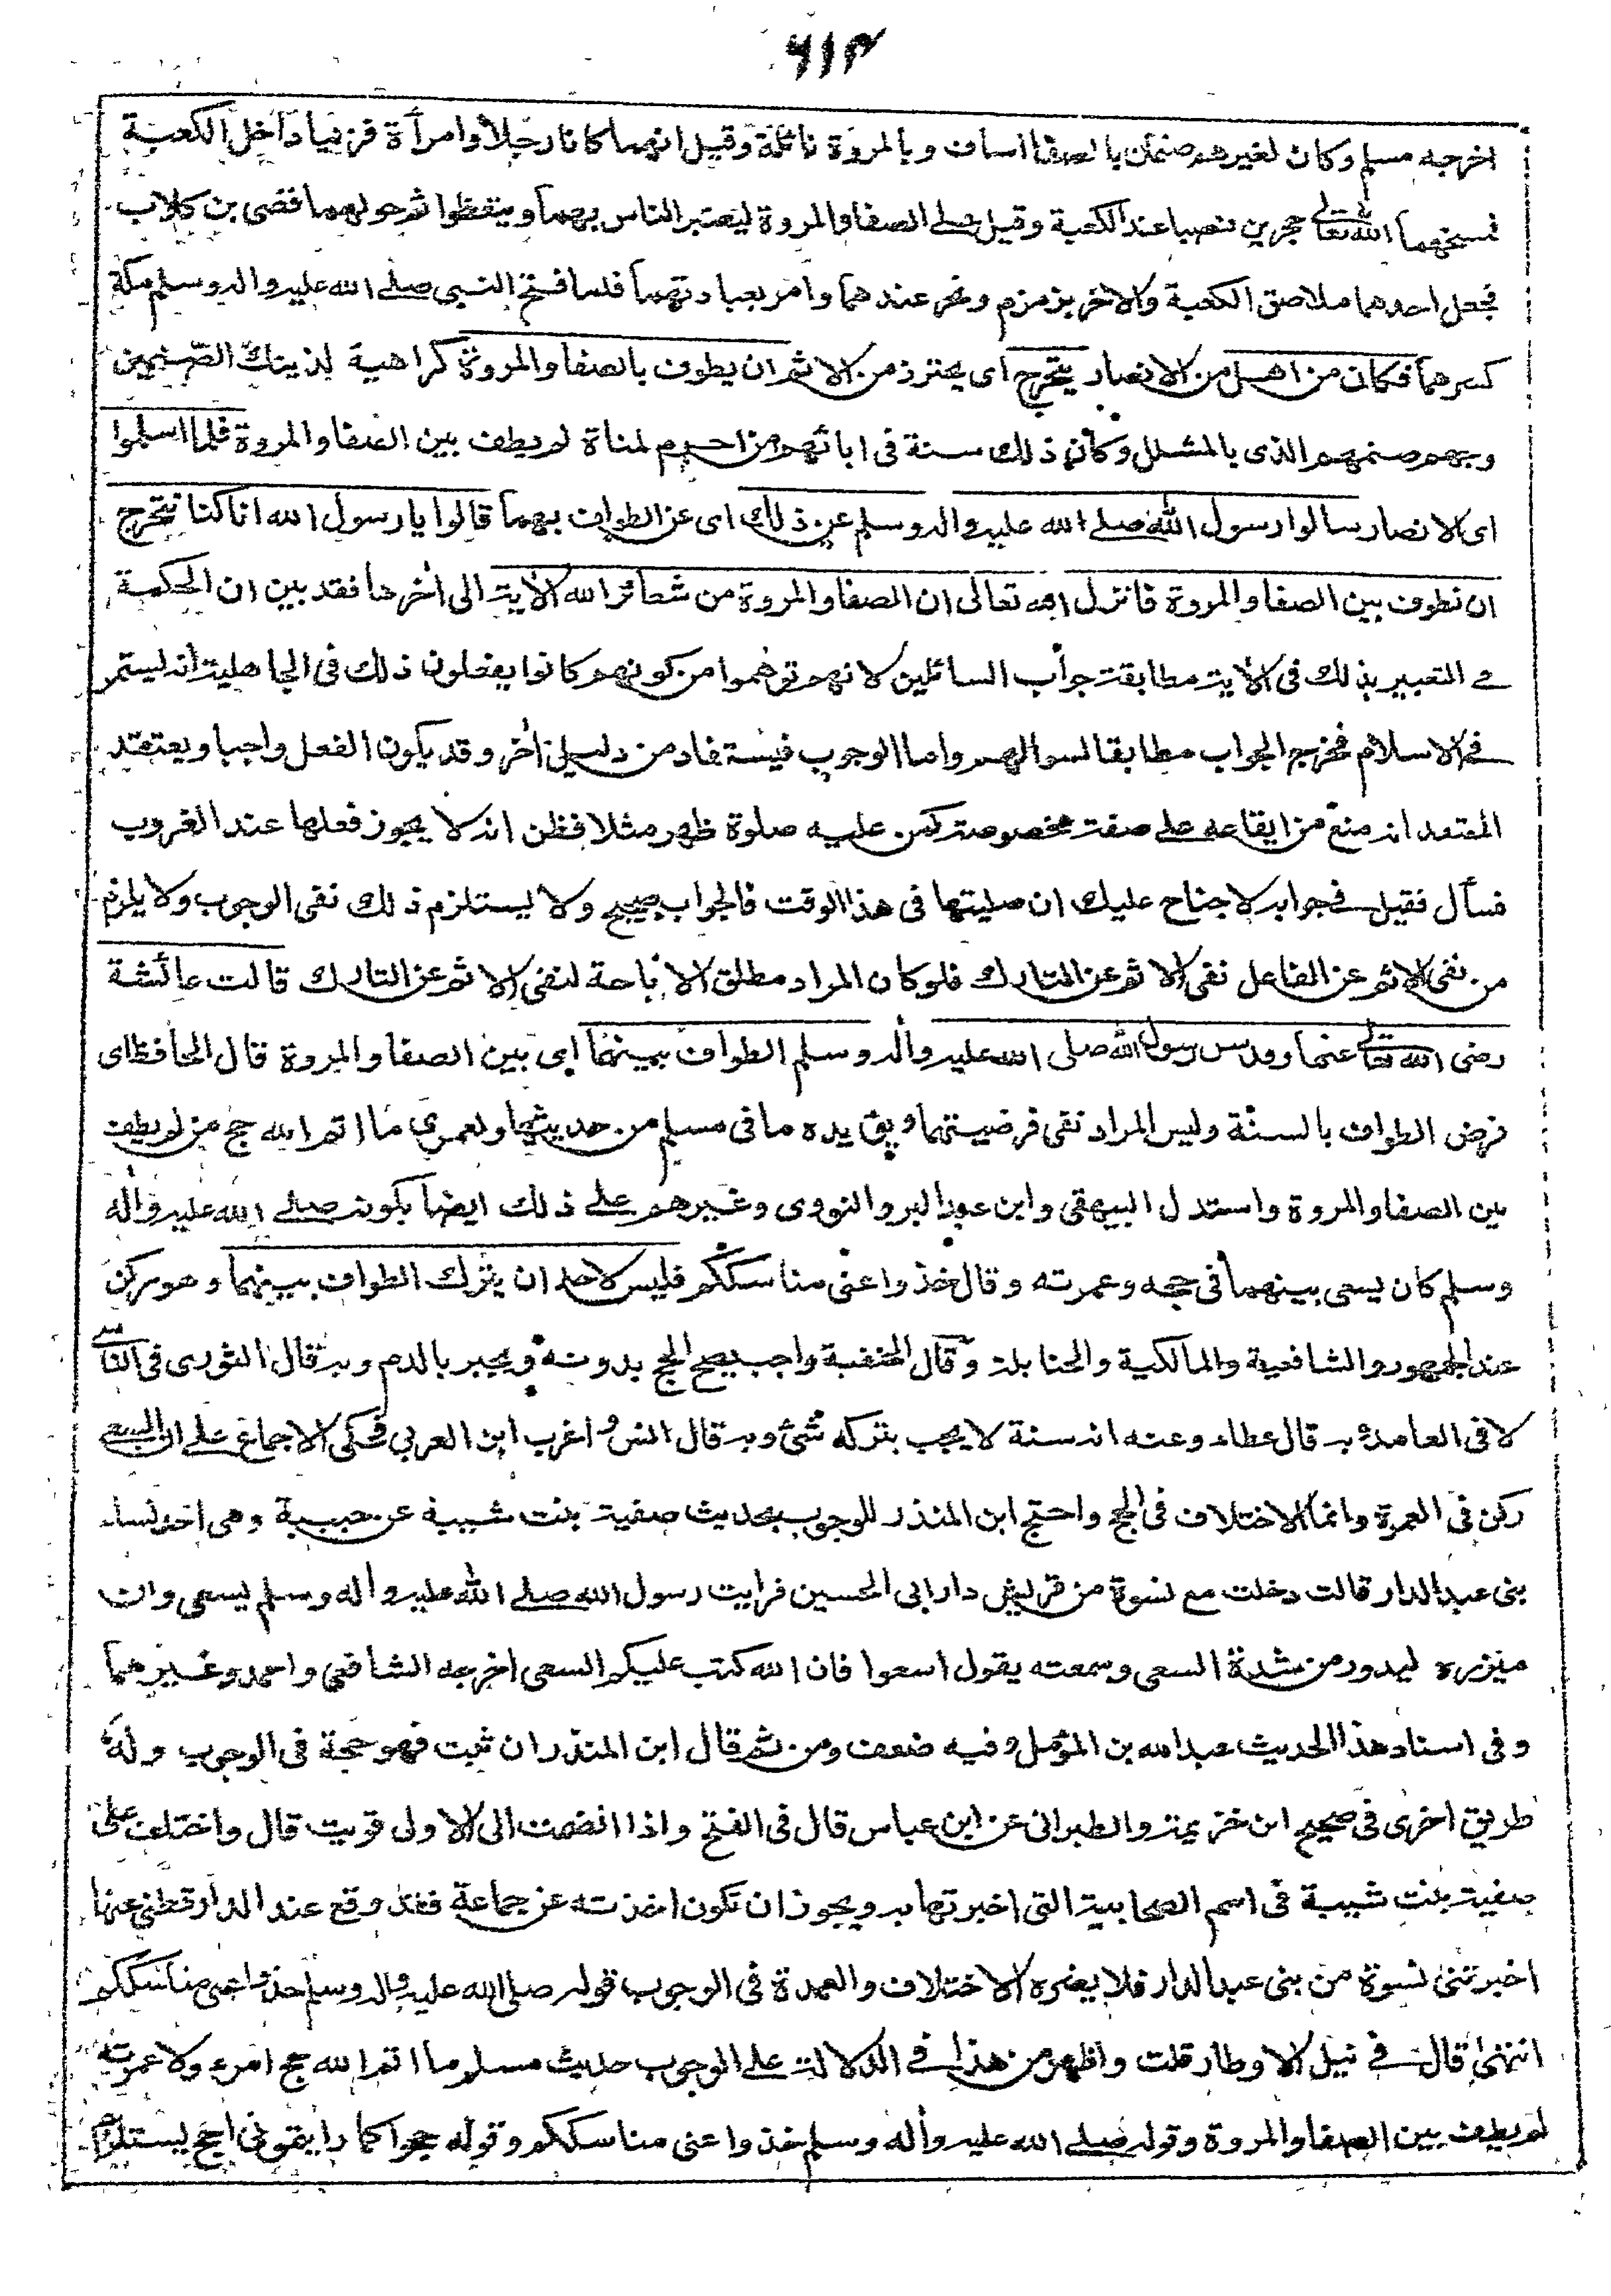 ٦١٣
اخرجه مسلم وكان لغيرهم صنمان بالصفا اساف وبالمروة نائلة وقيل انهما كانا رجلا وامرأة فزنيا داخل الكعبة
فمسخهما الله تعالى حجرين فنصبا عند الكعبة وقيل على الصفا والمروة ليعتبر الناس بهما ويتعظوا ثم حولهما قصى بن كلاب
فجعل احدهما ملاصق الكعبة والاخر بزمزم ونحر عندهما وامر بعبادتهما فلما فتح النبى صلى الله عليه واله وسلم مكة
كسرهما فكان من اهل من الانصار يتحرج اى يحترز من الاثم ان يطوف بالصفا والمروة كراهية لذينك الصنمين
وبهم صنمهم الذى بالمشلل وكان ذلك سنة فى ابائهم من احرم لمناة لم يطف بين الصفا والمروة فلما اسلموا
اى الانصار سالوا رسول الله صلى الله عليه واله وسلم عن ذلك اى عن الطواف بهما قالوا يا رسول الله انا كنا نتحرج
ان نطوف بين الصفا والمروة فانزل الله تعالى ان الصفا والمروة من شعائر الله الأية الى أخرها فقد بين ان الحكمة
فى التعبير بذلك فى الأية مطابقة جواب السائلين لانهم توهموا من كونهم كانوا يفعلون ذلك فى الجاهلية انه ليستمر
فى الاسلام فخرج الجواب مطابقا لسوالهم واما الوجوب فيستفاد من دليل أخر وقد يكون الفعل واجبا ويعتقد
المعتقد انه منع من ايقاعه على صفة مخصوصة كمن عليه صلوة ظهر مثلا فظن انه لا يجوز فعلها عند الغروب
فسأل فقيل فى جوابه لا جناح عليك ان صليتها فى هذا الوقت فالجواب صحيح ولا يستلزم ذلك نفى الوجوب ولا يلزم
من نفى الاثم عن الفاعل نفى الاثم عن التارك فلو كان المراد مطلق الاباحة لنفى الاثم عن التارك قالت عائشة
رضى الله تعالى عنها وقد سن رسول الله صلى الله عليه واله وسلم الطواف بينهما اى بين الصفا والمروة قال الحافظ اى
فرض الطواف بالسنة وليس المراد نفى فرضيتهما ويؤيده ما فى مسلم من حديثها ولعمرى ما اتم الله حج من لم يطف
بين الصفا والمروة واستدل البيهقى وابن عبد البر والنووى وغيرهم على ذلك ايضا بكونه صلى الله عليه وأله
وسلم كان يسعى بينهما فى حجه وعمرته وقال خذوا عنى مناسككم فليس لاحد ان يترك الطواف بينهما وهو ركن
عند الجمهور والشافعية والمالكية والحنابلة وقال الحنفية واجب يصح الحج بدونه ويجبر بالدم وبه قال الثورى فى الناسى
لا فى العامد وبه قال عطاء وعنه انه سنة لا يجب بتركه شئ وبه قال انس واغرب ابن العربي فحكى الاجماع على ان السعى
ركن فى العمرة وانما الاختلاف فى الحج واحتج ابن المنذر للوجوب بحديث صفية بنت شيبة عن حبيبة وهى احد نساء
بنى عبد الدار قالت دخلت مع نسوة من قريش دار ابى الحسين فرايت رسول الله صلى الله عليه وأله وسلم يسعى وان
ميزره ليدور من شدة السعى وسمعته يقول اسعوا فان الله كتب عليكم السعى اخرجه الشافعى واحمد وغيرهما
وفى اسناد هذا الحديث عبد الله بن المؤمل وفيه ضعف ومن ثم قال ابن المنذر ان ثبت فهو حجة فى الوجوب وله
طريق اخرى فى صحيح ابن خزيمة والطبرانى عن ابن عباس قال فى الفتح واذا انضمت الى الاولى قويت قال واختلف على
صفية بنت شيبة فى اسم الصحابية التى اخبرتها به ويجوز ان تكون اخذته عن جماعة فقد وقع عند الدارقطنى عنها
اخبرتنى نسوة من بنى عبد الدار فلا يضره الاختلاف والعمدة فى الوجوب قوله صلى الله عليه واله وسلم خذوا عنى مناسككم
انتهى قال فى نيل الاوطار قلت واظهر من هذا فى الدلالة على الوجوب حديث مسلم ما اتم الله حج امرء ولا عمرته
لم يطف بين الصفا والمروة وقوله صلى الله عليه وأله وسلم خذوا عنى مناسككم وقوله حجوا كما رايتمونى احج يستلزم